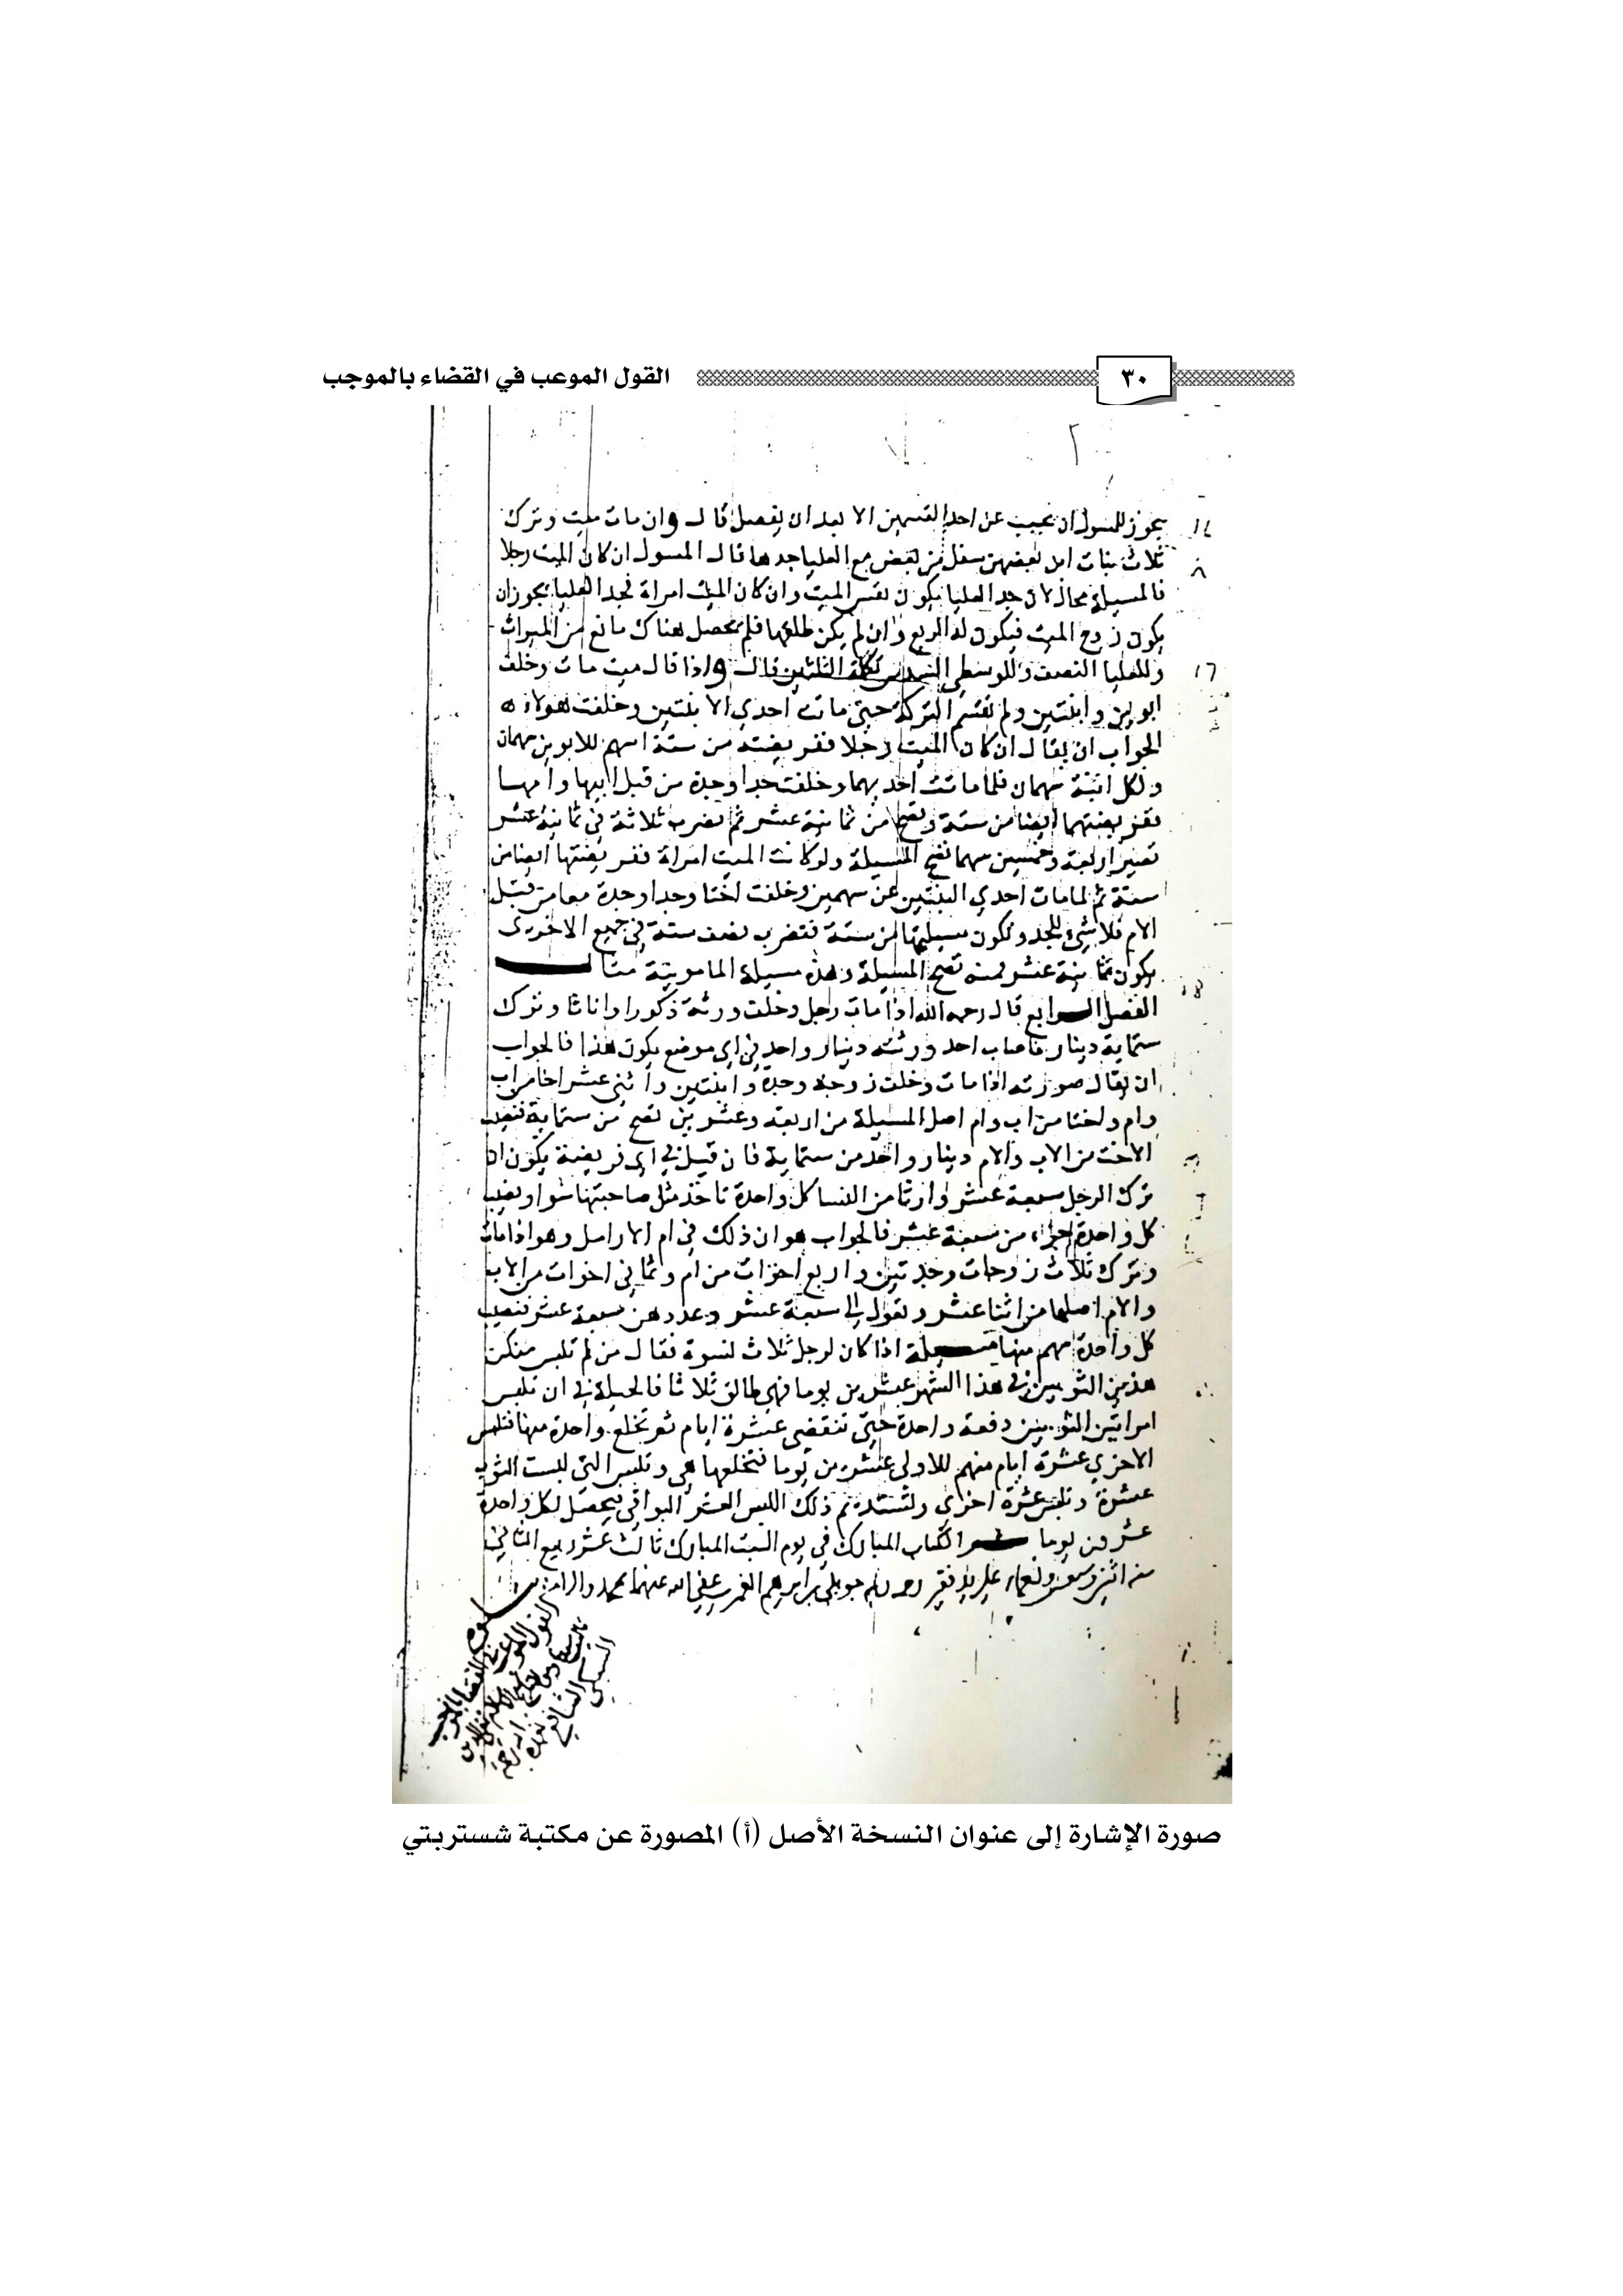 القول الموعب في القضاء بالموجب
٣٠
يجوز للمسول ان يجيب عن احد القسمين الا بعد ان يفصل قال وان مات ميت وترك
ثلاث بنات ابن بعضهن سفل من بعض مع العليا جدها قال المسول ان كان الميت رجلا
فالمسيلة محال لان جد العليا يكون نفس الميت وان كان الميت امراة فجد العليا يجوز ان
يكون زوج الميت فيكون له الربع وان لم يكن طلقها فلم يحصل هناك مانع من الميراث
وللعليا النصف وللوسطى السدس تكملة الثلثين قال واذا قال ميت مات وخلف
ابوين وابنتين ولم تقسم التركة حتى ماتت احدي الابنتين وخلفت هولاء
الجواب ان يقال ان كان الميت رجلا ففريضته من ستة اسهم للابوين سهمان
ولكل ابنة سهمان فلما ماتت احديهما وخلفت جدا وجدة من قبل ابيها وامها
ففريضتهما ايضا من ستة وتصح من ثمانية عشر ثم تضرب ثلاثة في ثمانية عشر
تصير اربعة وخمسين سهما تصح المسيلة ولو كانت الميت امراة ففريضتها ايضا من
ستة ثم لما مات احدي البنتين عن سهمين وخلفت اختا وجدا وجدة معا من قبل
الام فلا شي للجد وتكون مسيلتها من ستة فتضرب نصف ستة في جميع الاخرى
يكون ثمانية عشر فمنه تصح المسيلة وهذه مسيلة المامونية
الفصل الرابع قال رحمه الله اذا مات رجل وخلف ورثة ذكورا واناثا وترك
ستماية دينار فاصاب احد ورثته دينار واحد في اي موضع يكون هذا فالجواب
ان يقال صورته اذا مات وخلف زوجة وجدة وابنتين واثني عشر اخا من اب
وام واختا من اب وام اصل المسيلة من اربعة وعشرين تصح من ستماية فنصيب
الاخت من الاب والام دينار واحد من ستماية فان قيل في اي فريضة يكون ان
ترك الرجل سبعة عشر وارثا من النسا كل واحدة تاخذ مثل صاحبتها سوا ونصيب
كل واحدة من سبعة عشر فالجواب هو ان ذلك في ام الارامل وهو اذا مات
وترك ثلاث زوجات وجدتين واربع اخوات من ام وثماني اخوات من الاب
والام اصلها من اثنا عشر وتعول الى سبعة عشر وعددهن سبعة عشر فنصيب
كل واحدة سهم منها مسيلة اذا كان لرجل ثلاث نسوة فقال من لم تلبس منكن
هذين الثوبين في هذا الشهر عشرين يوما فهي طالق ثلاثا فالحيلة في ان تلبس
امراتين الثوبين دفعة واحدة حتى تنقضي عشرة ايام ثم تخلع واحدة منها فتلبس
الاخري عشرة ايام منهم للاولى عشرين يوما فتخلعها هي وتلبس التي لبست الثوب
عشرة وتلبس عشرة اخرى ذلك اللبس العشر البواقي فيحصل لكل واحدة
عشرون يوما الكتاب المبارك في يوم السبت المبارك ثالث عشر ربيع الثاني
سنه
القول الموعب
في القضا بالموجب
تقي الدين
السبكي الشافعي
صورة الإشارة إلى عنوان النسخة الأصل (أ) المصورة عن مكتبة شستربتي